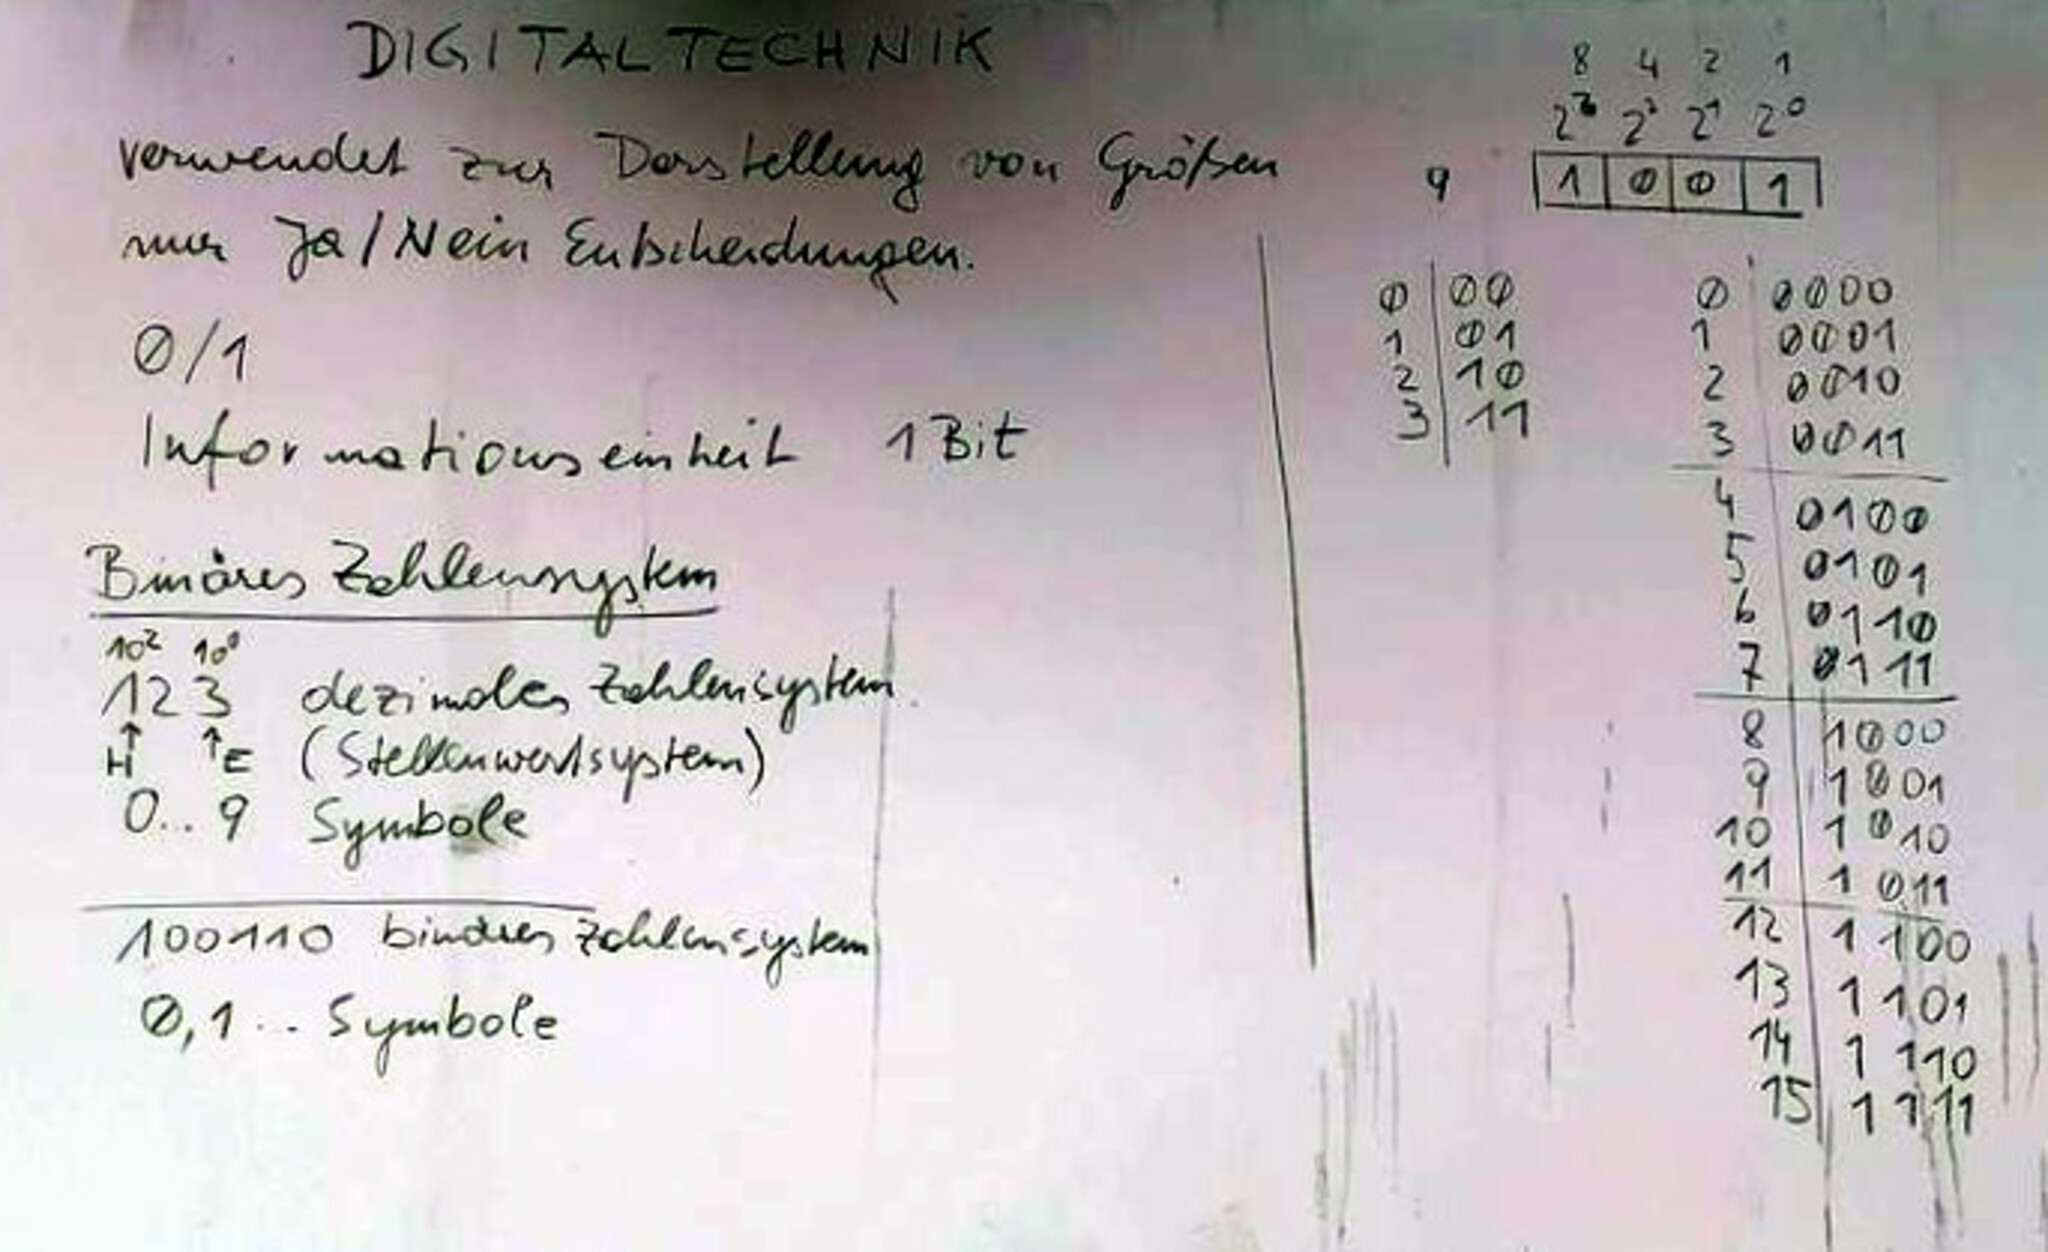 DIGITALTECHNIK
verwendet zur Darstellung von Größen
nur Ja/Nein Entscheidungen.
0/1
Informationseinheit 1 Bit
Binäres Zahlensystem
10² 10⁰
123 dezimales Zahlensystem
↑ ↑
H E (Stellenwertsystem)
0...9 Symbole
100110 binäres Zahlensystem
0,1... Symbole
8 4 2 1
2³ 2² 2¹ 2⁰
9 1 0 0 1
0 00
1 01
2 10
3 11
0 0000
1 0001
2 0010
3 0011
4 0100
5 0101
6 0110
7 0111
8 1000
9 1001
10 1010
11 1011
12 1100
13 1101
14 1110
15 1111